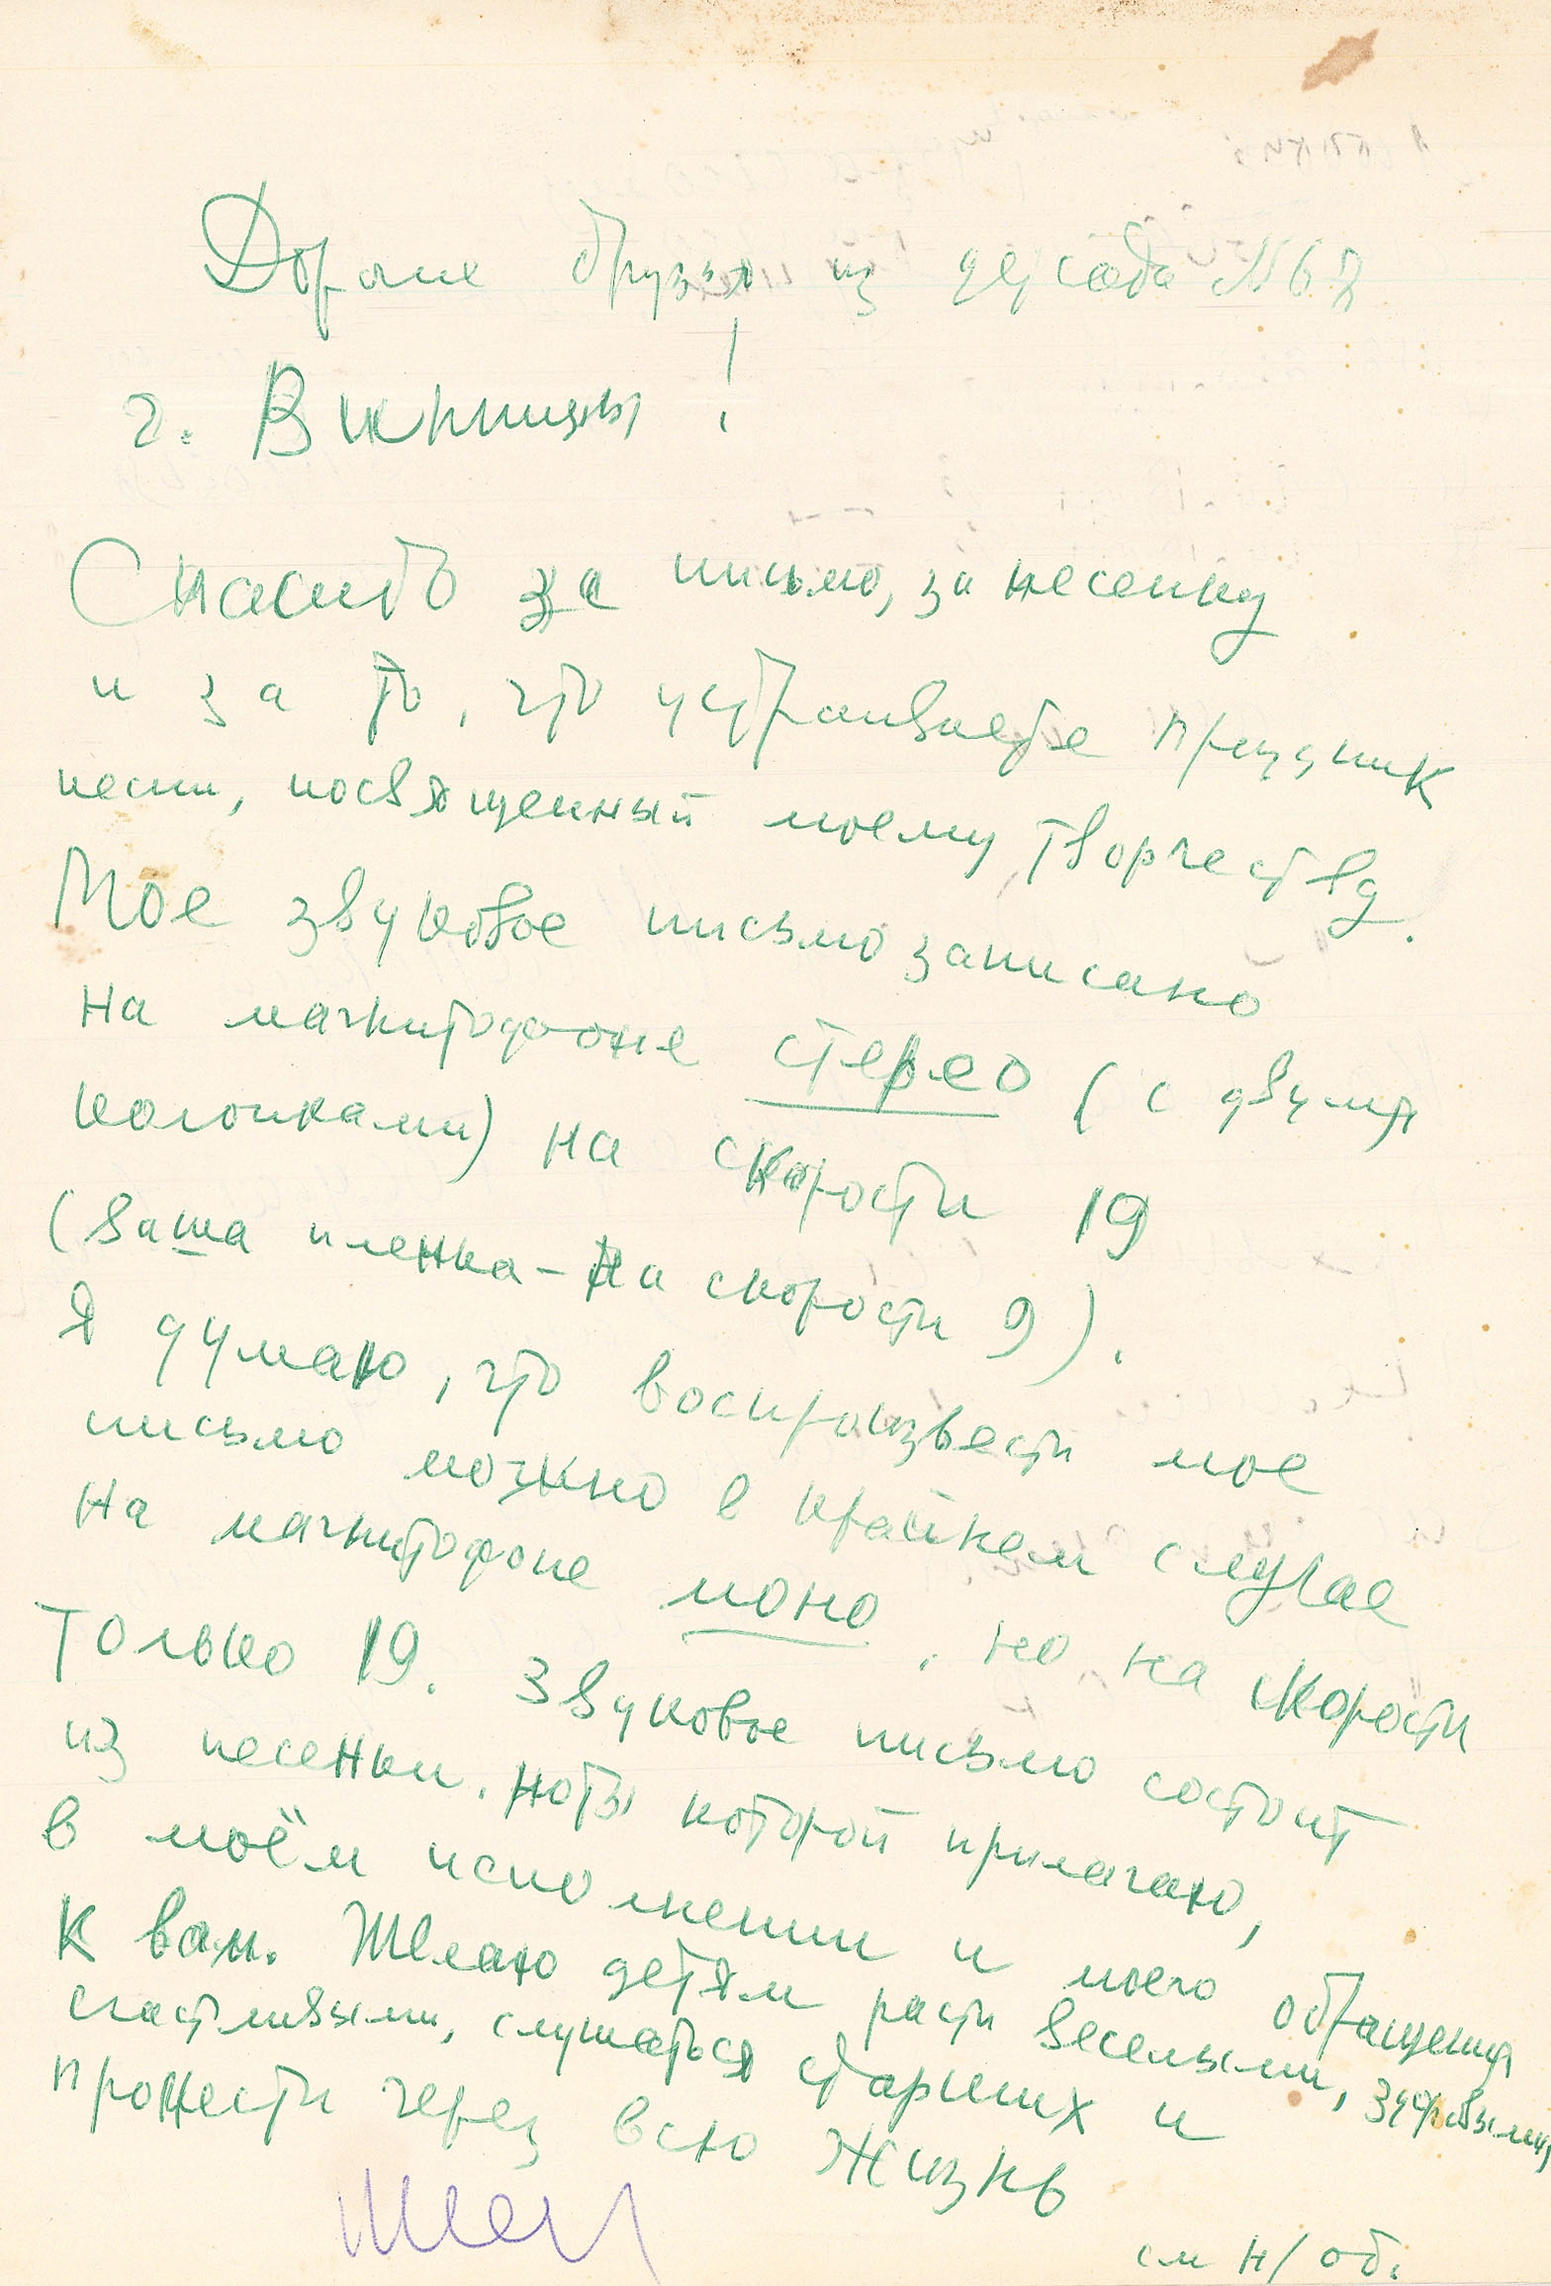 Дорогие друзья из детсада №67
г. Винницы!
Спасибо за письмо, за песенку
и за то, что устраиваете праздник
песни, посвященный моему творчеству.
Мое звуковое письмо записано
на магнитофоне стерео (с двумя
колонками) на скорости 19
(ваша пленка – на скорости 9).
Я думаю, что воспроизвести мое
письмо можно в крайнем случае
на магнитофоне моно, но на скорости
только 19. Звуковое письмо состоит
из песеньки, ноты которой прилагаю,
в моём исполнении и моего обращения
к вам. Желаю детям расти веселыми, здоровыми,
счастливыми, слушаться старших и
пронести через всю жизнь
см н/об.